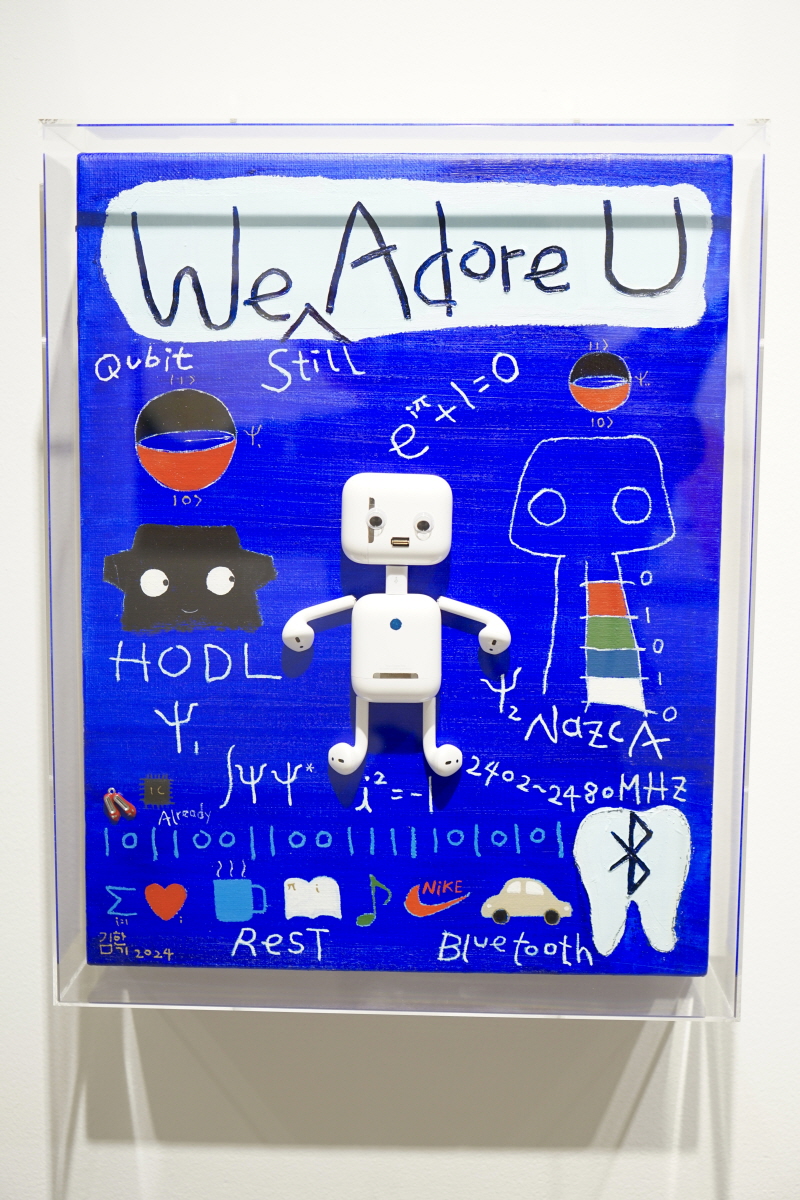 We Adore U
Still
Qubit
|1>
Ψ₁
|0>
e^iπ+1=0
|1>
Ψ₂
|0>
HODL
Ψ₁
0
1
0
1
0
Ψ₂
NazcA
∫ΨΨ*
i²=-1
2402~2480MHz
IC
Already
101100110011111010101
Σ
i=1
i
π i
NiKE
ReST
Bluetooth
2024